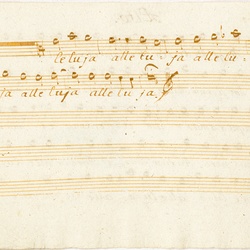 leluja alle lu - ja alle lu -
ja alleluja alle lu ja.